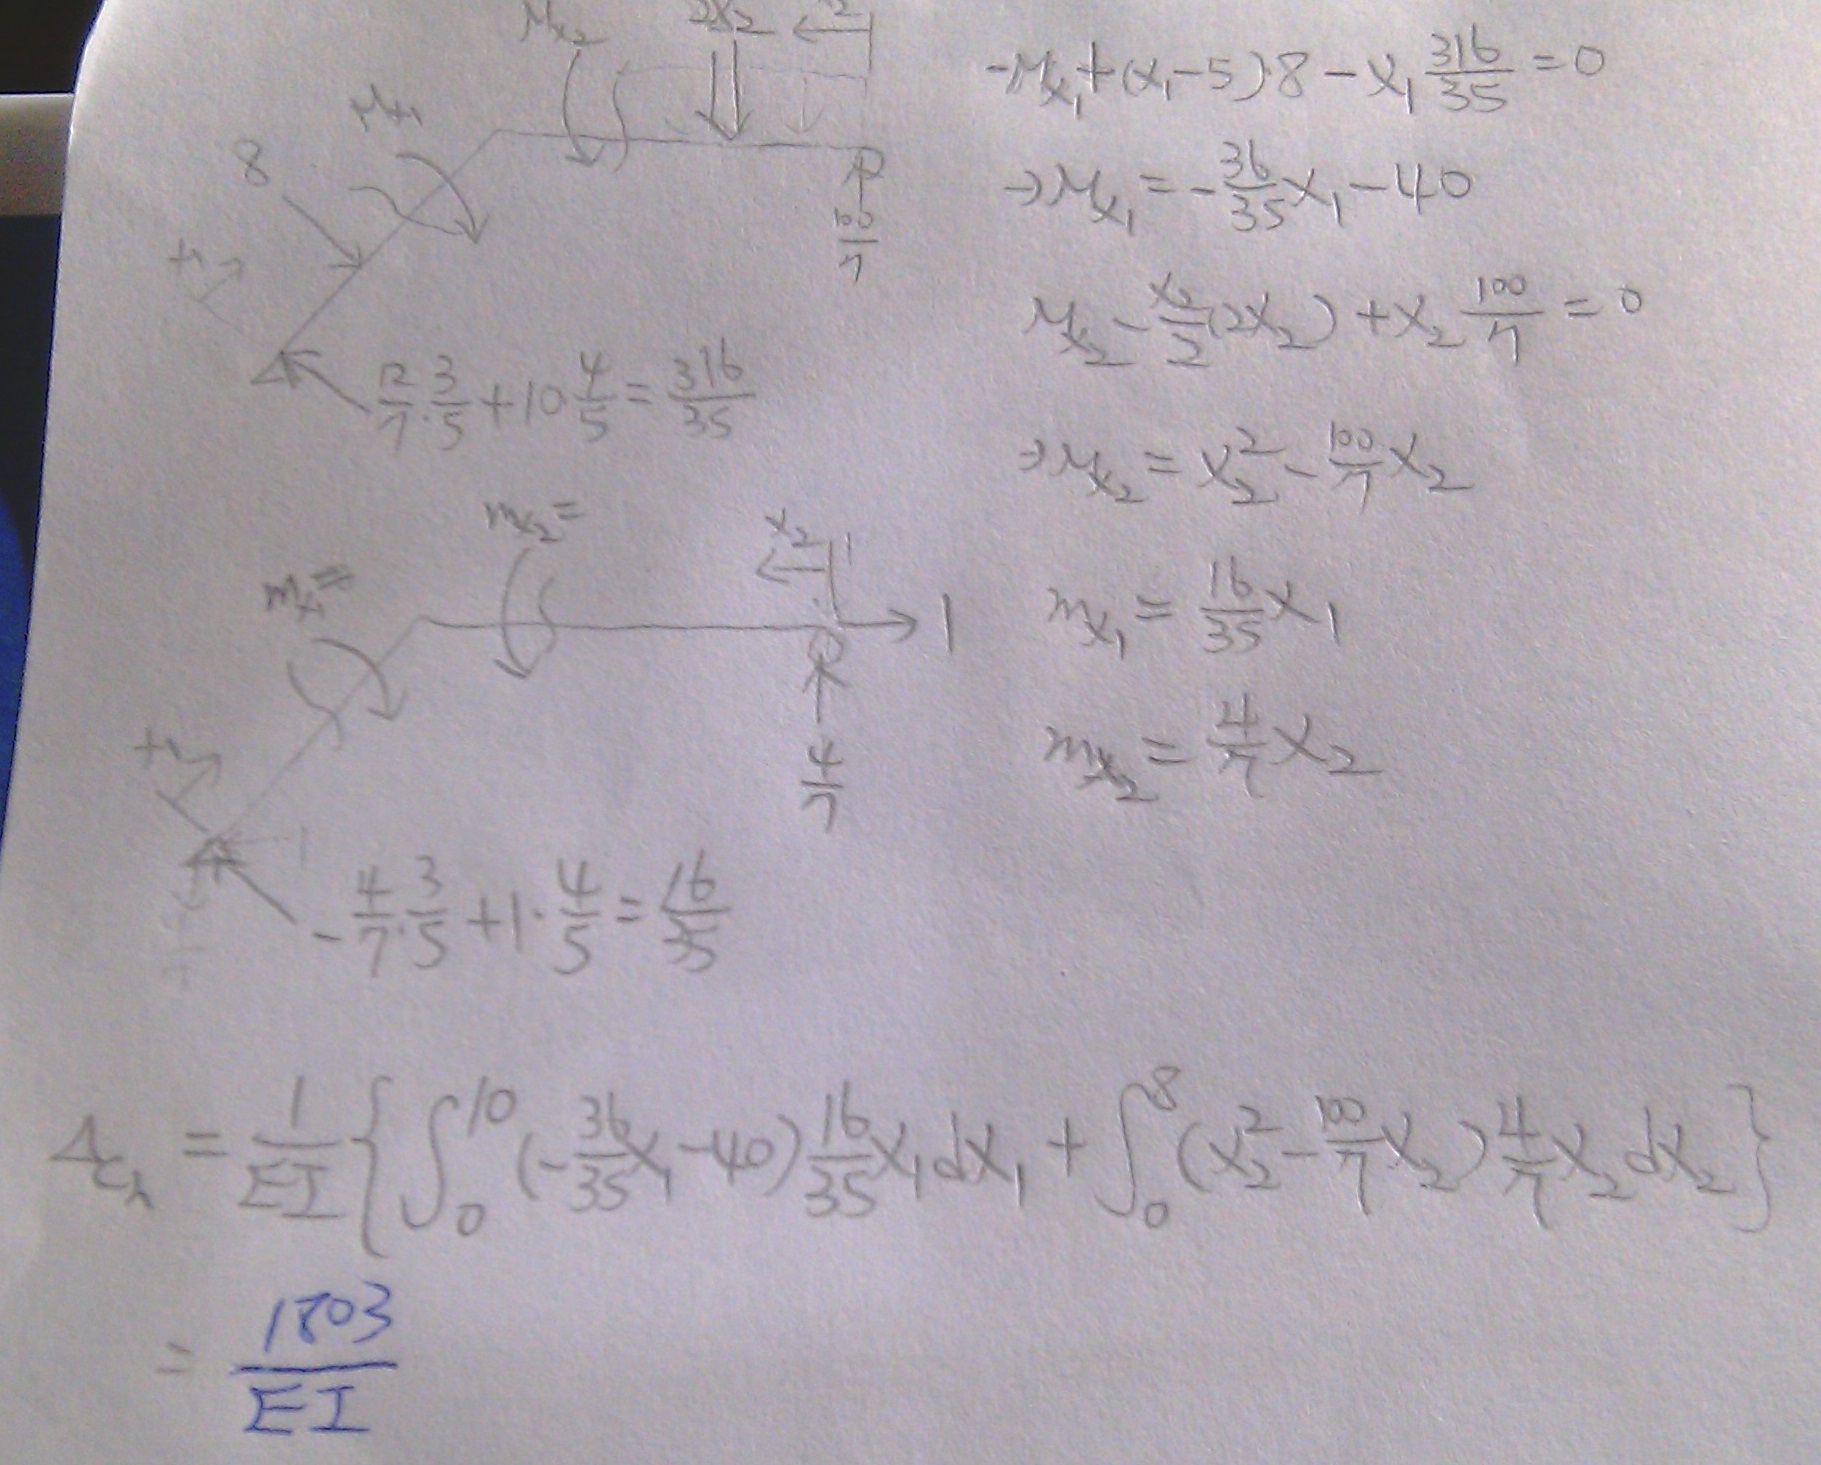 M_{x_2} 2x_2
M_{x_1}
8
100/7
12/7·3/5+10 4/5=316/35
-M_{x_1}+(x_1-5)·8-x_1 316/35=0
→M_{x_1}=-36/35x_1-40
M_{x_2}-x_2/2(2x_2)+x_2 100/7=0
→M_{x_2}=x_2^2-100/7x_2
m_{x_2}= x_2
m_{x_1}=
1
4/7
-4/7·3/5+1·4/5=16/35
m_{x_1}=16/35x_1
m_{x_2}=4/7x_2
Δ_{C_h}=1/EI{∫_0^10(-36/35x_1-40)16/35x_1dx_1+∫_0^8(x_2^2-100/7x_2)4/7x_2dx_2}
=1803/EI